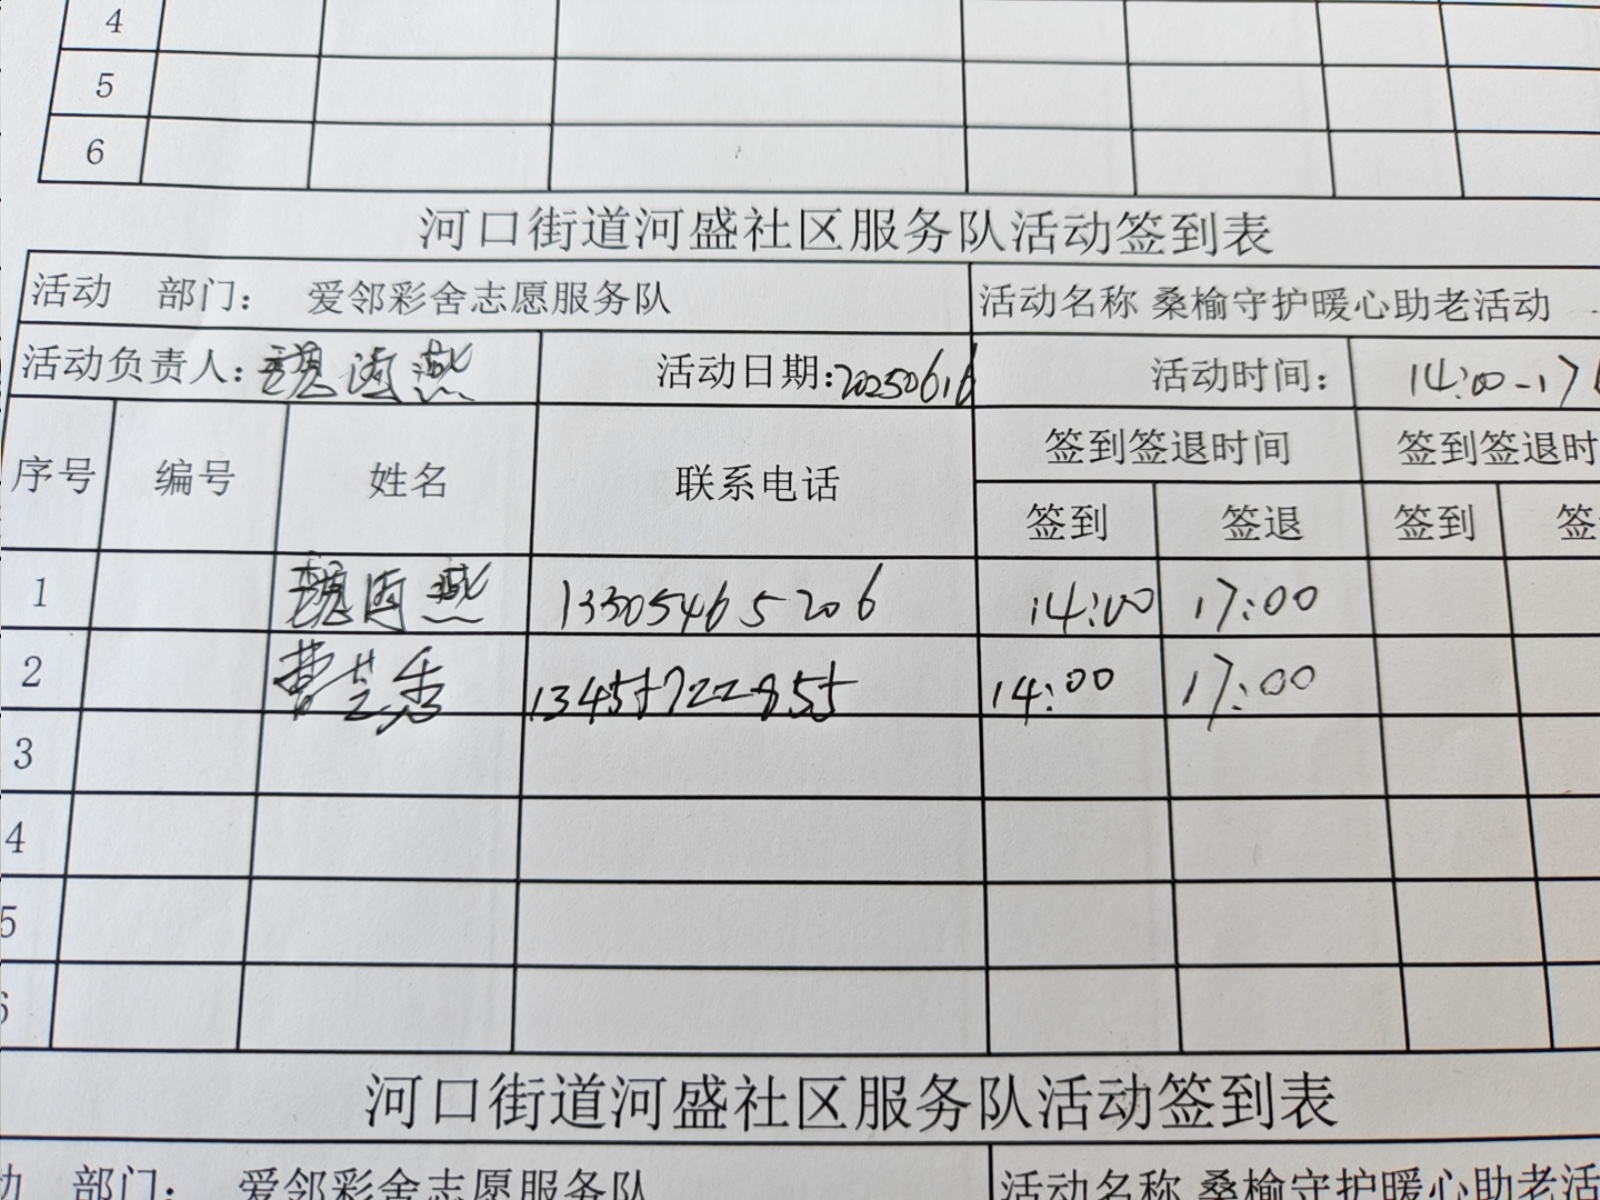 4
5
6
河口街道河盛社区服务队活动签到表
活动 部门： 爱邻彩舍志愿服务队 活动名称 桑榆守护暖心助老活动
活动负责人：魏海燕 活动日期：20250616 活动时间： 14:00-17
序号 编号 姓名 联系电话 签到签退时间 签到签退时
签到 签退 签到 签
1 魏海燕 13305465206 14:00 17:00
2 曹芝香 13455722855 14:00 17:00
3
4
5
6
河口街道河盛社区服务队活动签到表
动 部门： 爱邻彩舍志愿服务队 活动名称 桑榆守护暖心助老活